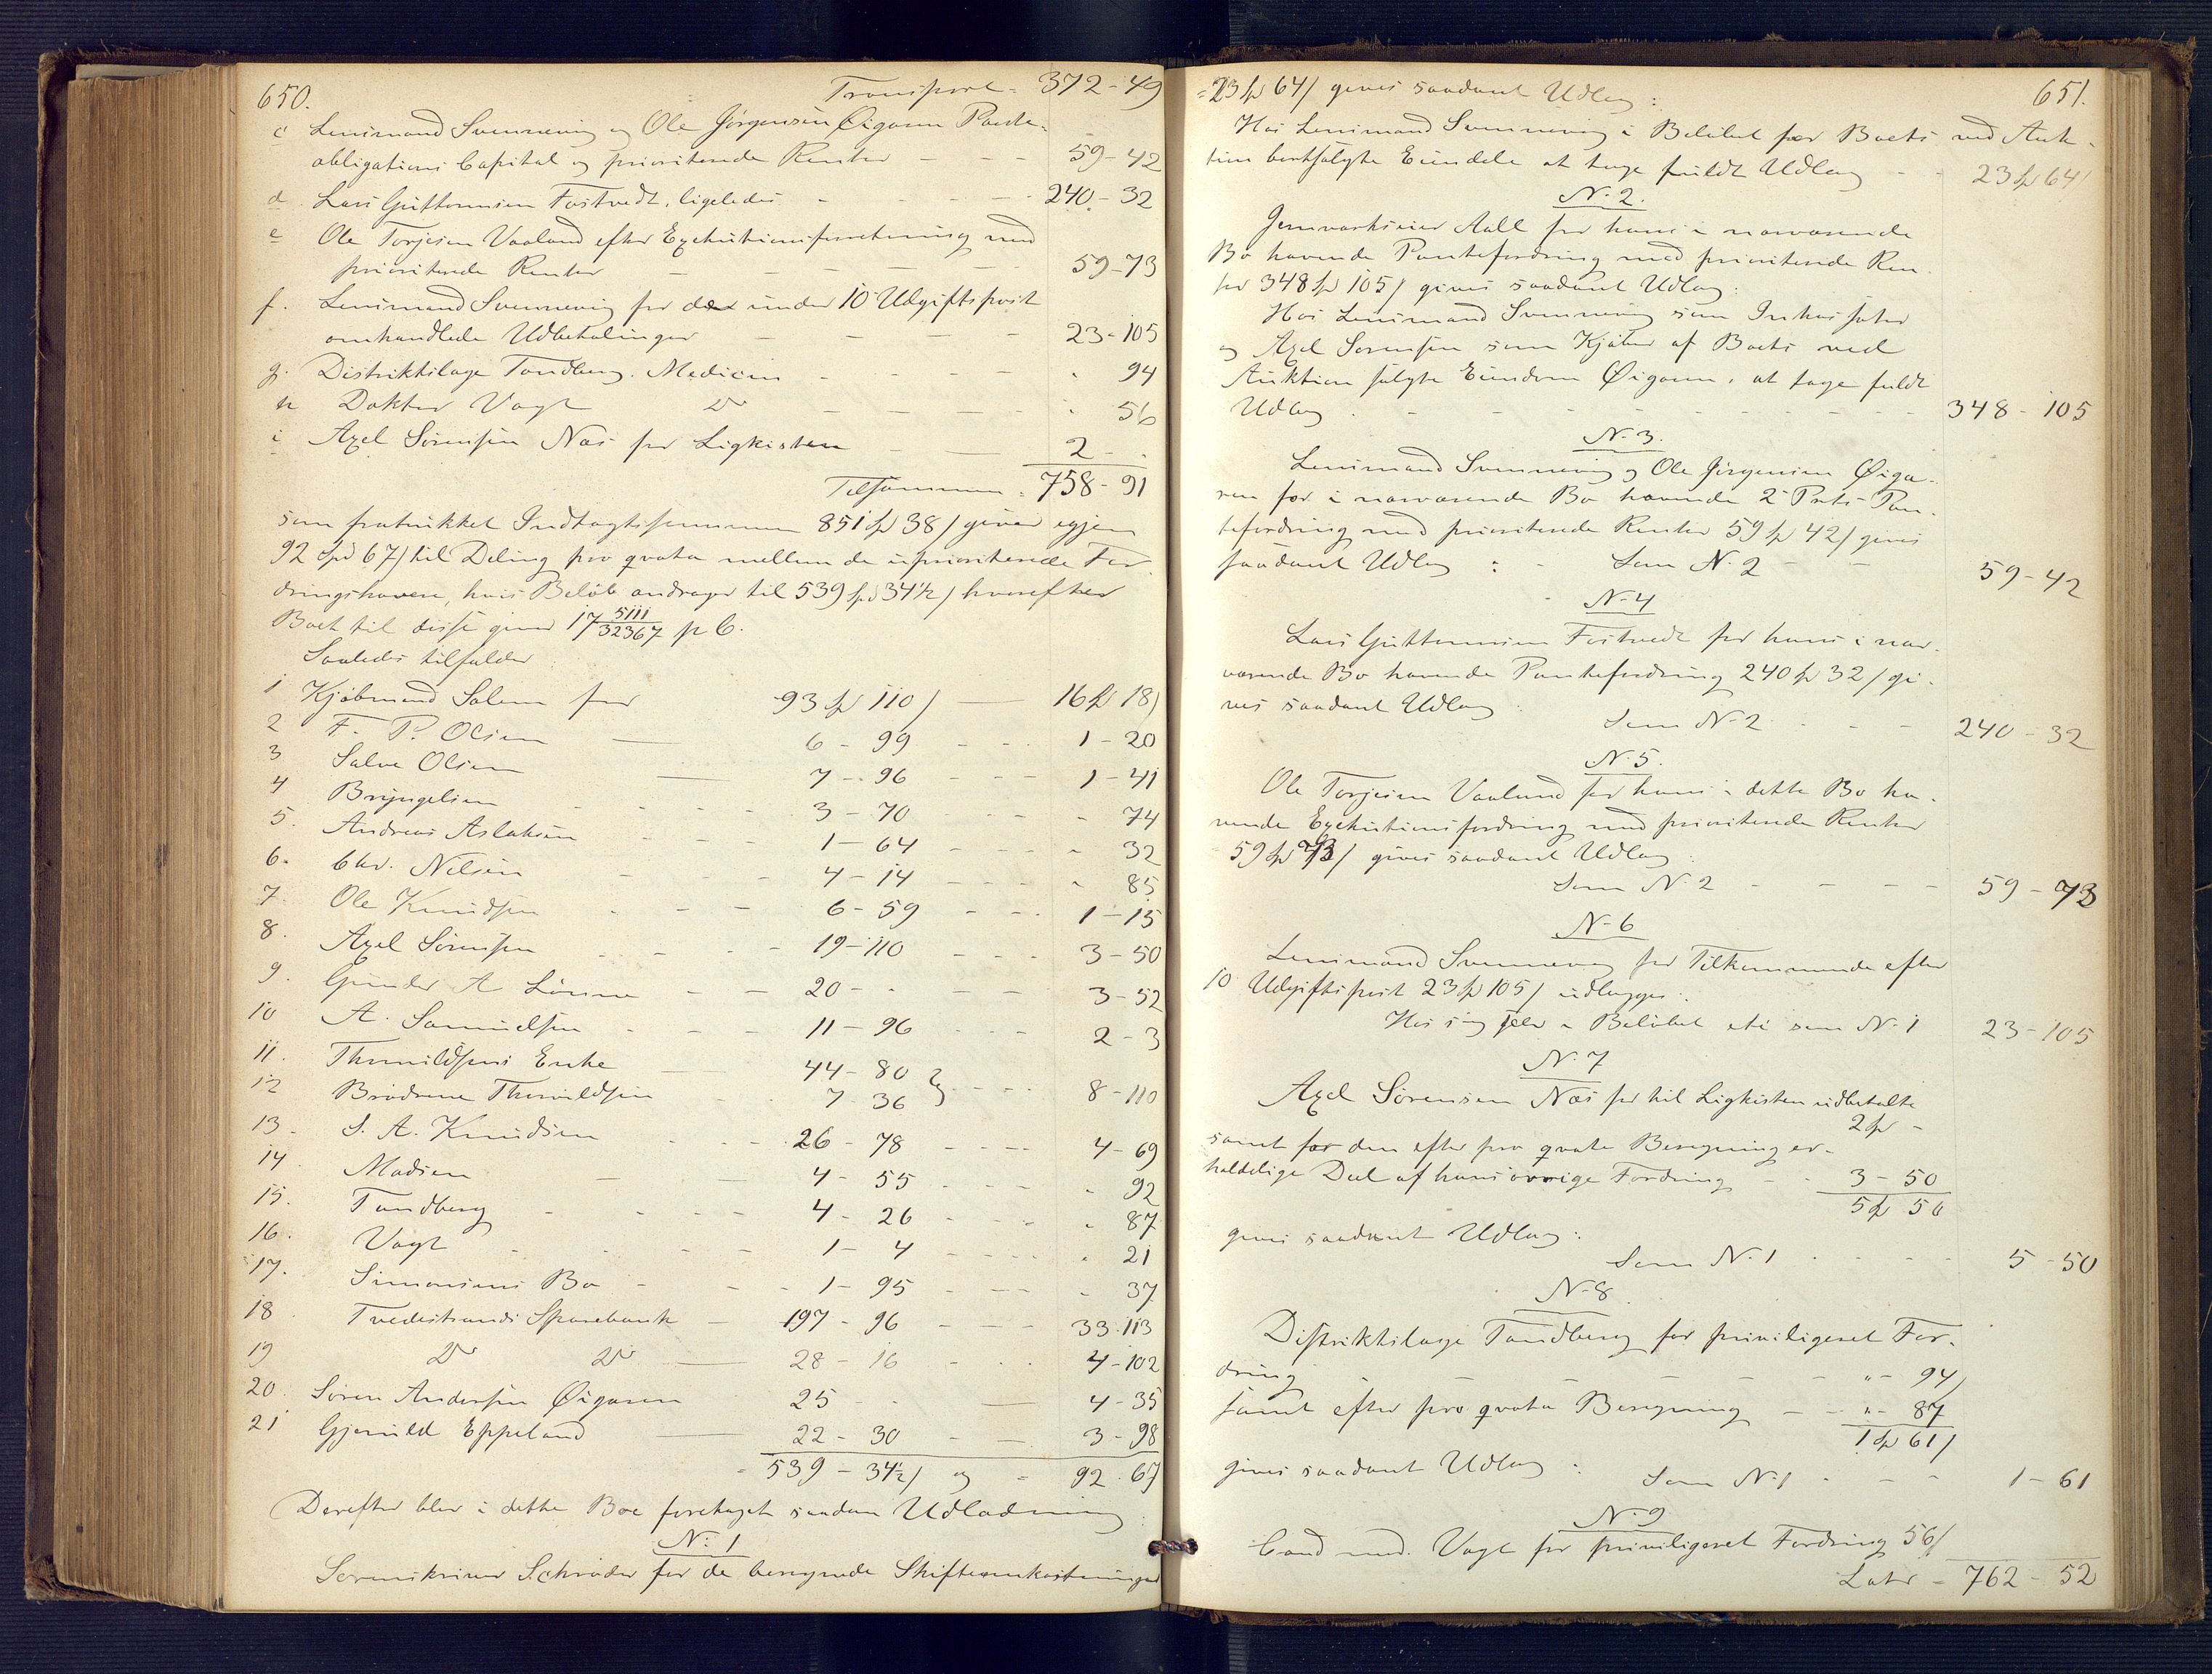 650.
Transport = 372-49
c Lensmand Svenneving og Ole Jörgensen Øigaren Pante-
obligations Capital og prioriterede Renter - - - 59-42
d Lars Guttormsen Fostvedt, ligeledes - - - 240-32
e Ole Torjesen Vaaland efter Exekutionsforretning med
prioriterede Renter - - - 59-73
f. Lensmand Svenneving for det under 10 Udgiftspost
omhandlede Udbetalinger - - - 23-105
g. Distriktslæge Tandberg, Medicin - - - " 94
h Doktor Vogt Do - - - " 56
i Axel Sörensen Næs for Ligkisten - 2 - "
Tilsammen = 758-91
som fratrukket Indtægtssummen 851 Spd 38/ giver igjen
92 Spd 67/ til Deling pro qvota mellem de uprioriterede For-
dringshavere, hvis Beløb andrager til 539 Spd 34½/ hvorefter
Boet til disse giver 17 5111/32367 p C.
Saaledes tilfalder:
1 Kjøbmand Salem for 93 Spd 110/ — 16 Spd 18/
2 F. P. Olsen — 6 - 99 - - - 1-20
3 Salve Olsen — 7 - 96 - - - 1-41
4 Bryngelsen - - - 3 - 70 - - - " 74
5. Andreas Aslaksen - - - 1 - 64 - - - " 32
6. Chr. Nilsen - - - 4 - 14 - - - " 85
7. Ole Knudsen - - - 6 - 59 - - - 1-15
8. Axel Sörensen - - - 19-110 - - - 3-50
9. Gunder A Lönne - - 20 - " - - 3-52
10 A. Samuelsen - - - 11 - 96 - - - 2-3
11. Thorvildsens Enke — 44 - 80 }
12 Brödrene Thorvildsen - 7 - 36 } - - - 8-110
13. S. A. Knudsen - - - 26 - 78 - - - 4-69
14 Madsen - - 4 - 55 - - - " 92
15. Tandberg - - - 4 - 26 - - - " 87
16. Vogt - - - 1 - 4 - - - " 21
17. Simonsens Bo - - - 1 - 95 - - - " 37
18 Tvedestrands Sparebank - 197 - 96 - - - 33-113
19 Do Do — 28 - 16 - - - 4-102
20. Sören Andersen Øigaren 25 - " — 4-35
21 Gjeruld Eppeland — 22 - 30 - - 3-98
= 539 - 34½/ og = 92-67
Derefter blev i dette Boe foretaget saadan Udlodning:
No. 1
Sorenskriver Schröder for de beregnede Skifteomkostninger
651.
= 23 Spd 64/ gives saadant Udlæg:
Hos Lensmand Svenneving i Beløbet for Boets ved Auk-
tion bortsolgte Eiendele at tage fuldt Udlæg - - 23 Spd 64/
N. 2.
Jernverkseier Aall for hans i nærværende
Bo havende Pantefordring med prioriterede Ren-
ter 348 Spd 105/ gives saadant Udlæg:
Hos Lensmand Svenneving som Inkassator
og Axel Sörensen som Kjøber af Boets ved
Auktion solgte Eiendom Øigaren, at tage fuldt
Udlæg - - - 348-105
N. 3.
Lensmand Svenneving og Ole Jörgensen Øiga-
ren for i nærværende Bo havende 2 Prts Pan-
tefordring med prioriterede Renter 59 Spd 42/ gives
saadant Udlæg: - Som N. 2 - - 59-42
N. 4
Lars Guttormsen Fostvedt for hans i nær-
værende Bo havende Pantefordring 240 Spd 32/ gi-
ves saadant Udlæg:
Som N. 2 - - - 240-32
N. 5.
Ole Torjesen Vaaland for hans i dette Bo ha-
vende Exekutionsfordring med prioriterede Renter
59 Spd 73/ gives saadant Udlæg:
Som N. 2 - - - 59-73
N. 6
Lensmand Svenneving for Tilkommende efter
10 Udgiftspost 23 Spd 105/ udlægges:
Hos sig selv i Beløbet etc som N. 1 23-105
N. 7
Axel Sörensen Næs for til Ligkisten udbetalte
2 Spd -
samt for den efter pro qvota Beregning er-
holdelige Deel af hans øvrige Fordring - - 3 - 50
5 Spd 50
gives saadant Udlæg:
Som N. 1 - - - 5-50
N. 8.
Distriktslæge Tandberg for priviligeret For-
dring - - - " - 94/
samt efter pro qvota Beregning - - " - 87
1 Spd 61/
gives saadant Udlæg:
Som N. 1 - - - 1-61
N. 9
Cand med. Vogt for priviligeret Fordring 56/
Later = 762-52